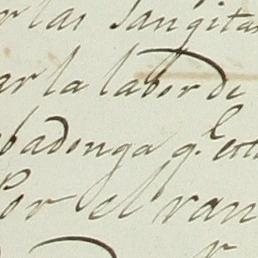 r las Sangita
ar la labor de
badonga q.l est
Por el ran